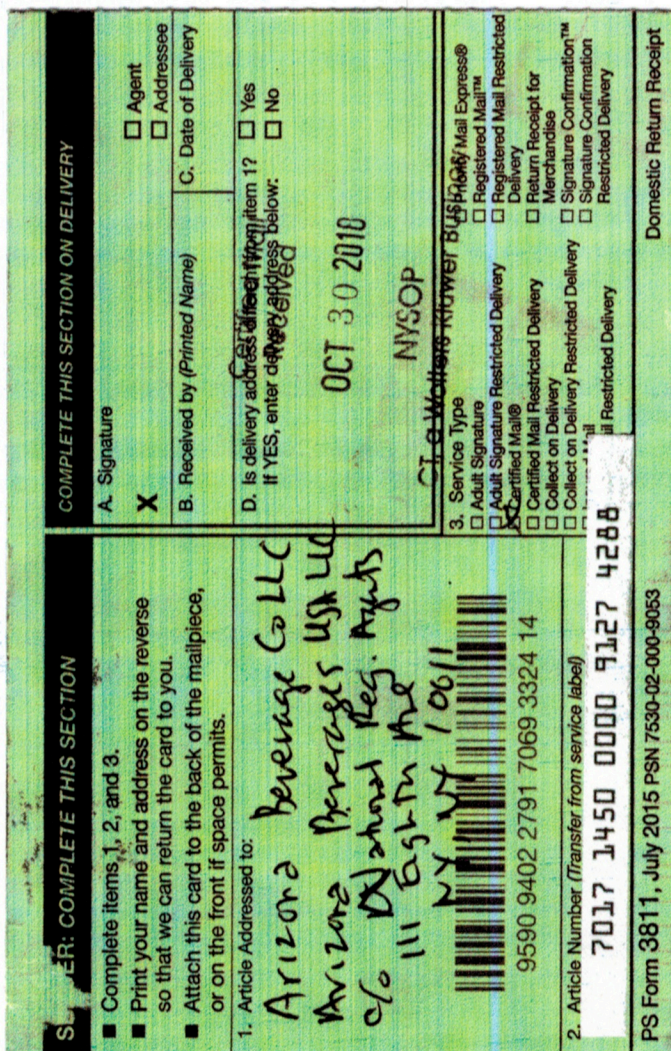 ER: COMPLETE THIS SECTION
■ Complete items 1, 2, and 3.
■ Print your name and address on the reverse
so that we can return the card to you.
■ Attach this card to the back of the mailpiece,
or on the front if space permits.
1. Article Addressed to:
Arizona Beverage Co LLC
Arizona Beverages USA LLC
c/o National Reg. Agents
111 Eighth Ave
NY NY 10011
9590 9402 2791 7069 3324 14
2. Article Number (Transfer from service label)
7017 1450 0000 9127 4288
COMPLETE THIS SECTION ON DELIVERY
A. Signature
X
☐ Agent
☐ Addressee
B. Received by (Printed Name)
C. Date of Delivery
D. Is delivery address different from item 1? ☐ Yes
If YES, enter delivery address below: ☐ No
Certified Mail
Received
OCT 30 2018
NYSOP
CT, a Wolters Kluwer Business
3. Service Type
☐ Adult Signature
☐ Adult Signature Restricted Delivery
☒ Certified Mail®
☐ Certified Mail Restricted Delivery
☐ Collect on Delivery
☐ Collect on Delivery Restricted Delivery
Mail
il Restricted Delivery
☐ Priority Mail Express®
☐ Registered Mail™
☐ Registered Mail Restricted
Delivery
☐ Return Receipt for
Merchandise
☐ Signature Confirmation™
☐ Signature Confirmation
Restricted Delivery
PS Form 3811, July 2015 PSN 7530-02-000-9053
Domestic Return Receipt